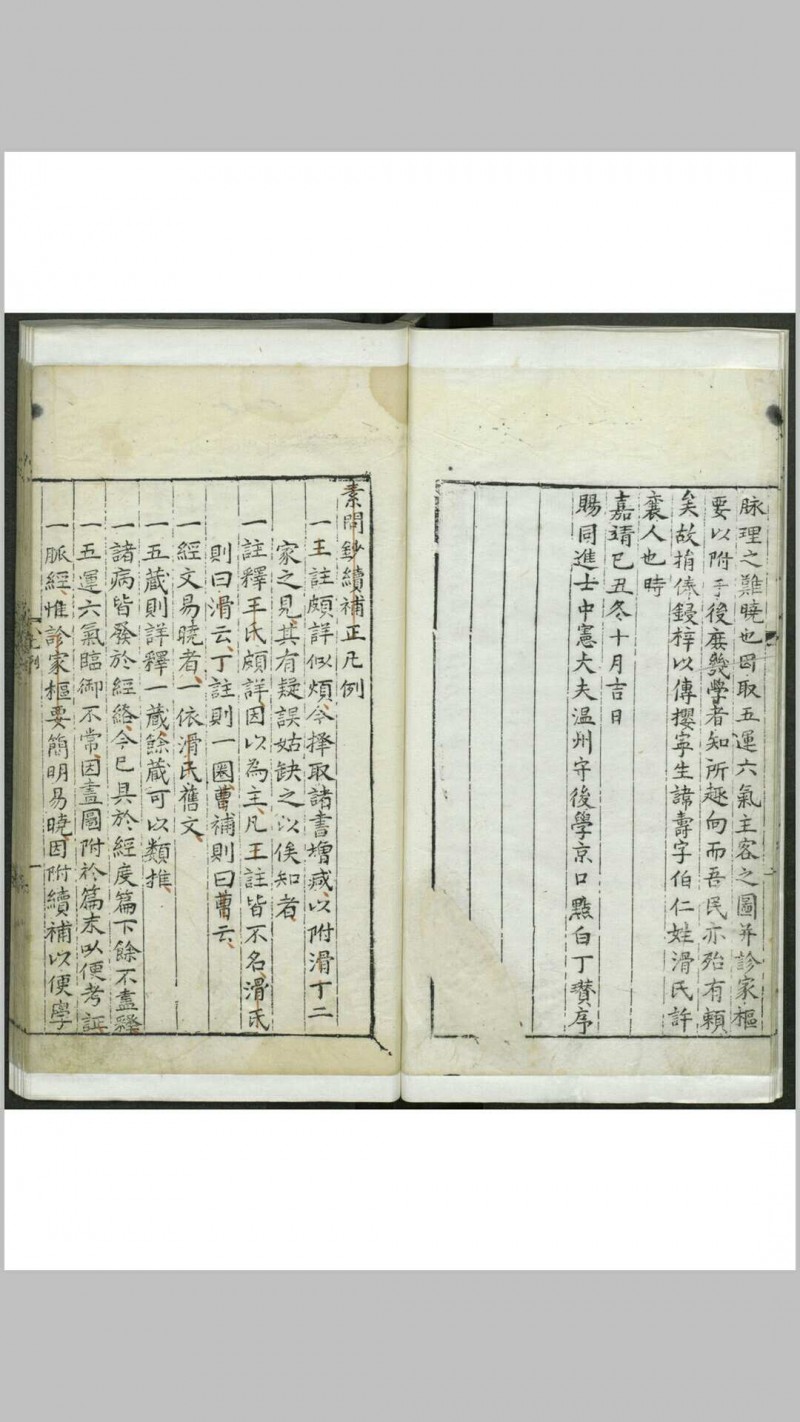 脉理之難曉也因取五運六氣主客之圖并診家樞
要以附于後庶幾學者知所趣向而吾民亦殆有賴
矣故捐俸鋟梓以傳攖寧生諱壽字伯仁姓滑氏許
襄人也時
嘉靖己丑冬十月吉日
賜同進士中憲大夫温州守後學京口點白丁瓚序
素問鈔續補正凡例
一王註頗詳似煩今擇取諸書增减以附滑丁二
家之見其有疑誤姑缺之以俟知者
一註釋王氏頗詳因以為主凡王註皆不名滑氏
則曰滑云丁註則一圈曹補則曰曹云
一經文易曉者一依滑氏舊文
一五藏則詳釋一藏餘藏可以類推
一諸病皆發於經絡今已具於經度篇下餘不盡釋
一五運六氣臨御不常因畫圖附於篇末以便考証
一脈經惟診家樞要簡明易曉因附續補以便學